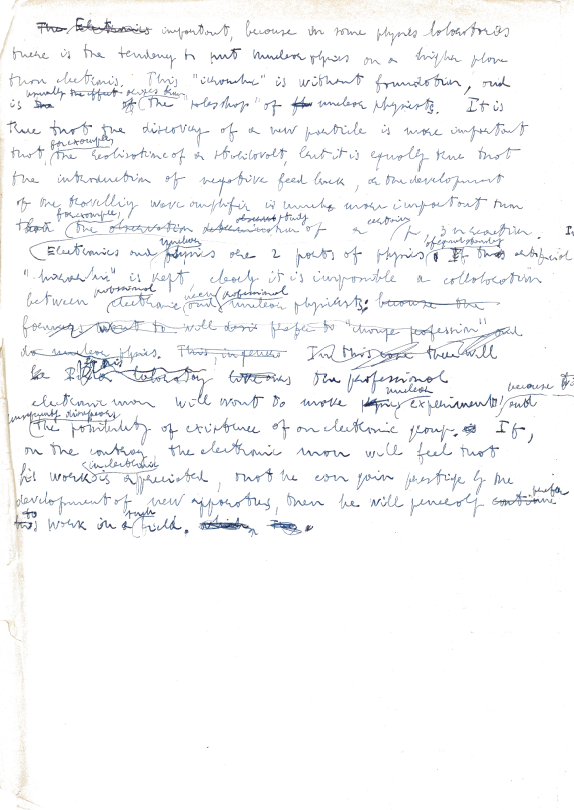 The Electronics important, because in some physics laboratories
there is the tendency to put nuclear physics on a higher plane
than electronics. This "hierarchie" is without foundation, and
is usually the effect of the of nuclear physicists. It is
true that the discovery of a new particle is more important
that, for example, the realisation of a stabilovolt, but it is equally true that
the introduction of negative feed back, or the development
of the travelling wave amplifier is much more important than
that for example, the observation determination study of a certain β reaction.
Electronics and nuclear physics are 2 parts of physics of equal standing. If this artificial
"hierarchie" is kept, clearly it is impossible a collaboration
between professional electronic and professional nuclear physicists: because the
formers want to will prefer to "change profession" and
do nuclear physics. This, in genere In this case there will
be In this laboratory the professional
electronic man will want to make nuclear experiments, and because
the possibility of existence of an electronic group. disappears If,
on the contrary the electronic man will feel that
his work in electronics is appreciated, that he can gain prestige by the
development of new apparatus, then he will continue prefer
to this work in a such field. which